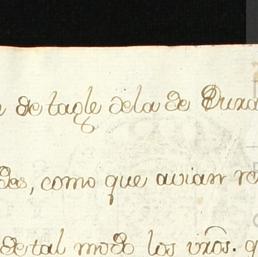 de tagle dela de Dura
des, como que avian re
de tal modo los vrõs. q